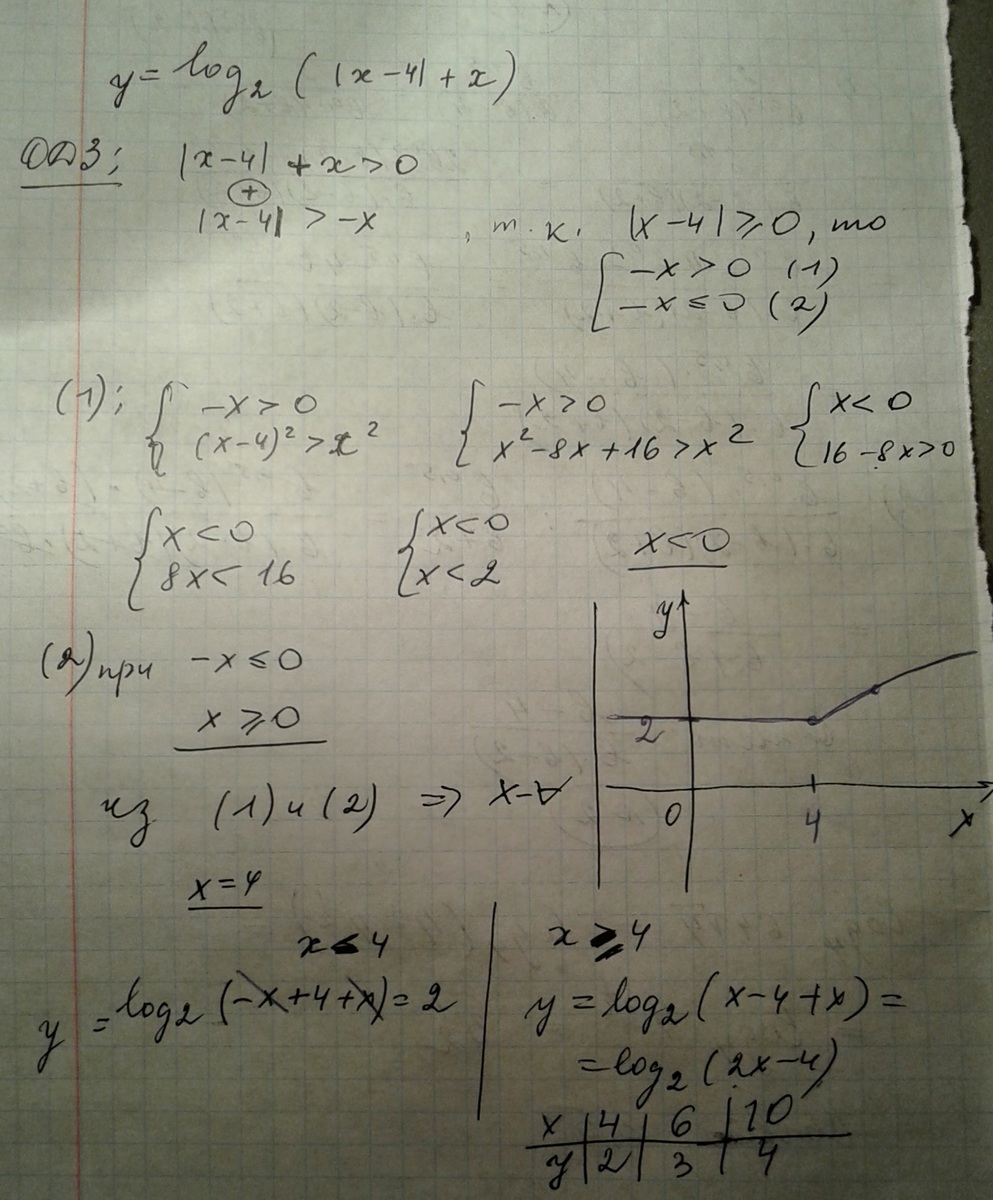 y = log₂ ( |x-4| + x )
ОДЗ: |x-4| + x > 0
+
|x-4| > -x , т.к. |x-4| ⩾ 0, то
[ -x > 0 (1)
-x ≤ 0 (2)
(1): { -x > 0 { -x > 0 { x < 0
(x-4)² > x² x² - 8x + 16 > x² 16 - 8x > 0
{ x < 0 { x < 0 x < 0
8x < 16 x < 2
y
(2) при -x ≤ 0
x ⩾ 0
2
из (1) и (2) => x-∀
0 4 x
x = 4
x < 4 x ⩾ 4
y = log₂ (-x+4+x) = 2 y = log₂ (x-4+x) =
= log₂ (2x-4)
x | 4 | 6 | 10
y | 2 | 3 | 4